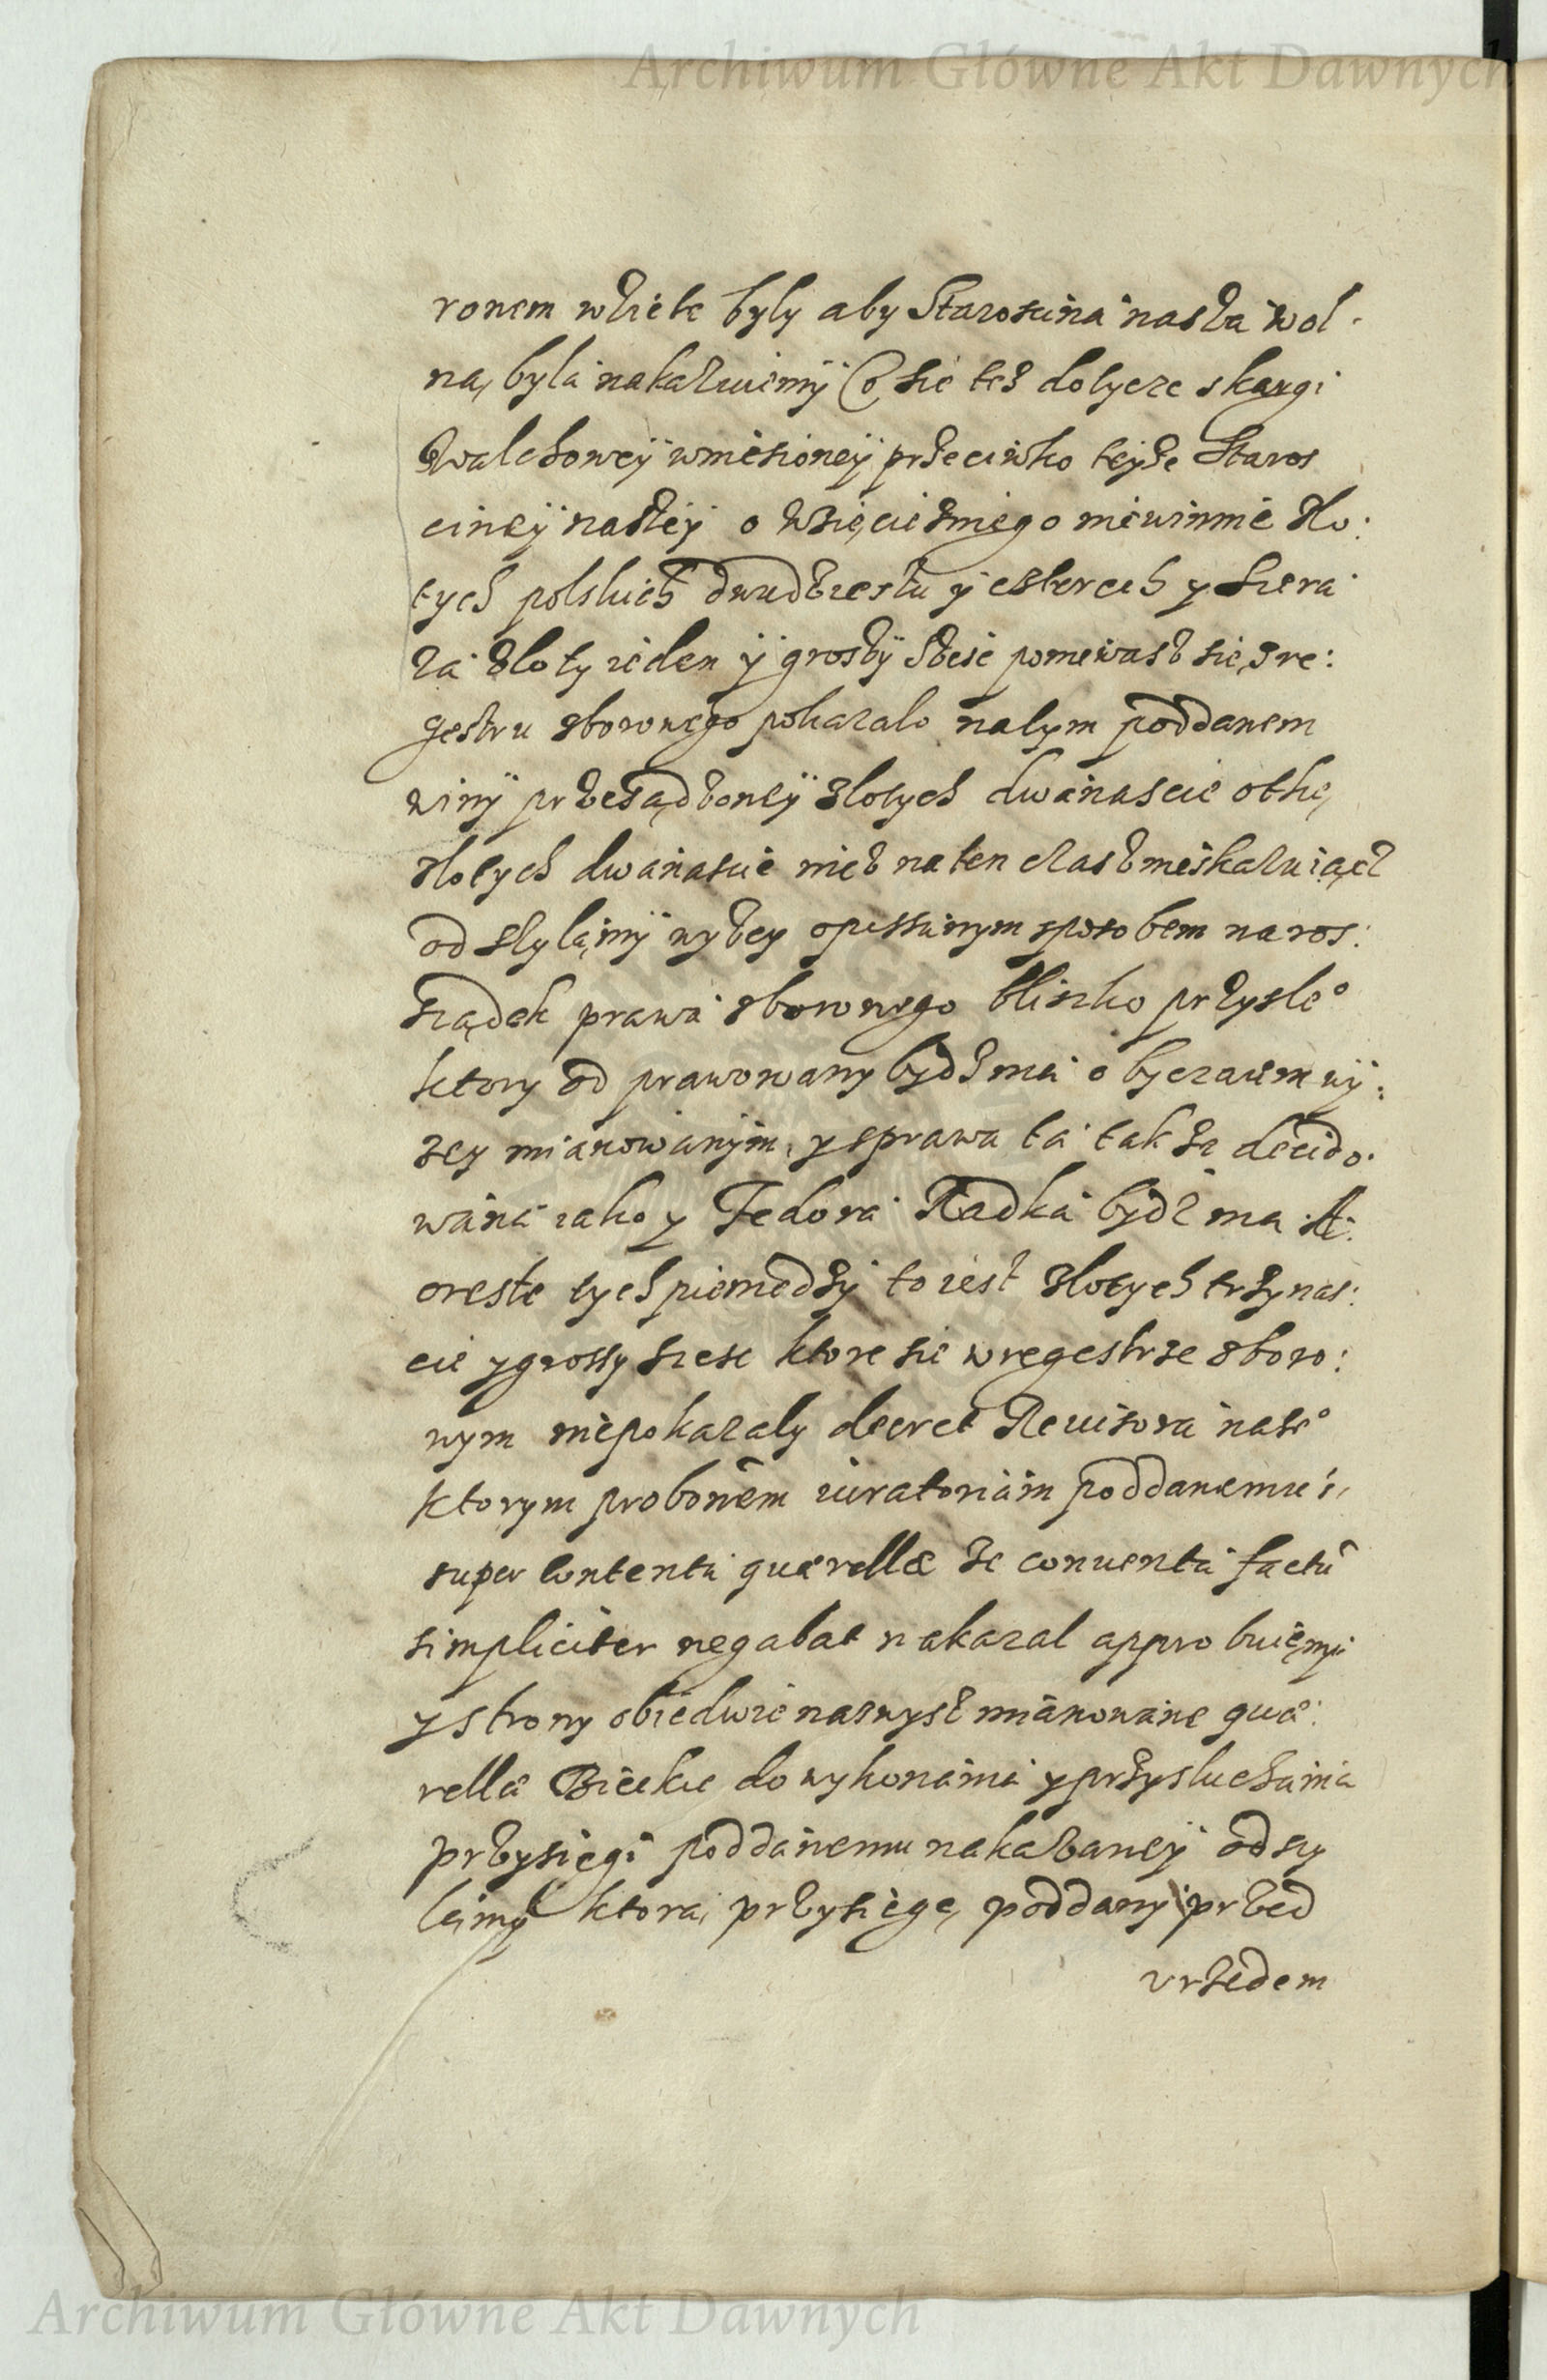 Archiwum Główne Akt Dawnych
ronem wziete były aby Starościna nasza wol:
na, była nakazuiemy Co sie tesz dotycze skargi
Walchowey wniesioney przeciwko teyże Staros
ciney naszey o wzięcie zniego niewinnie zło:
tych polskich dwudziestu y czterech y siera
za złoty ieden y groszy szesc poniewasz sie z re:
gestru zborowego pokazało na tym poddanem
winy przesądzoney złotych dwanascie o thę
złotych dwanascie nicz na ten czas znieskazuiącz
od syłamy wyżey opissanym sposobem na ros:
sządek prawa zborowego blisko przyszłeº
ktory od prawowany bydz ma obyczaiem wy:
zey mianowanym, y sprawa ta tak ze decido:
wana iako y Fedora Kadka bydz ma A:
o reste tych pieniędzy to iest złotych trzynas:
cie y groszy szesc ktore sie w regestrze zboro:
wym niepokazały decret Reuisora naszeº
ktorym probonem iuratoriam poddanemu
super contenta quærellæ ze conuenta factū
simpliciter negabat nakazal approbuięmy
y strony obiedwie nazwysz mianowane quæ:
rellæ Biecku do wykonania y przysłuchania
przysiegi poddanemu nakazaney odsy
łamy ktora, przysiege, poddany przed
vrzedem
Archiwum Główne Akt Dawnych